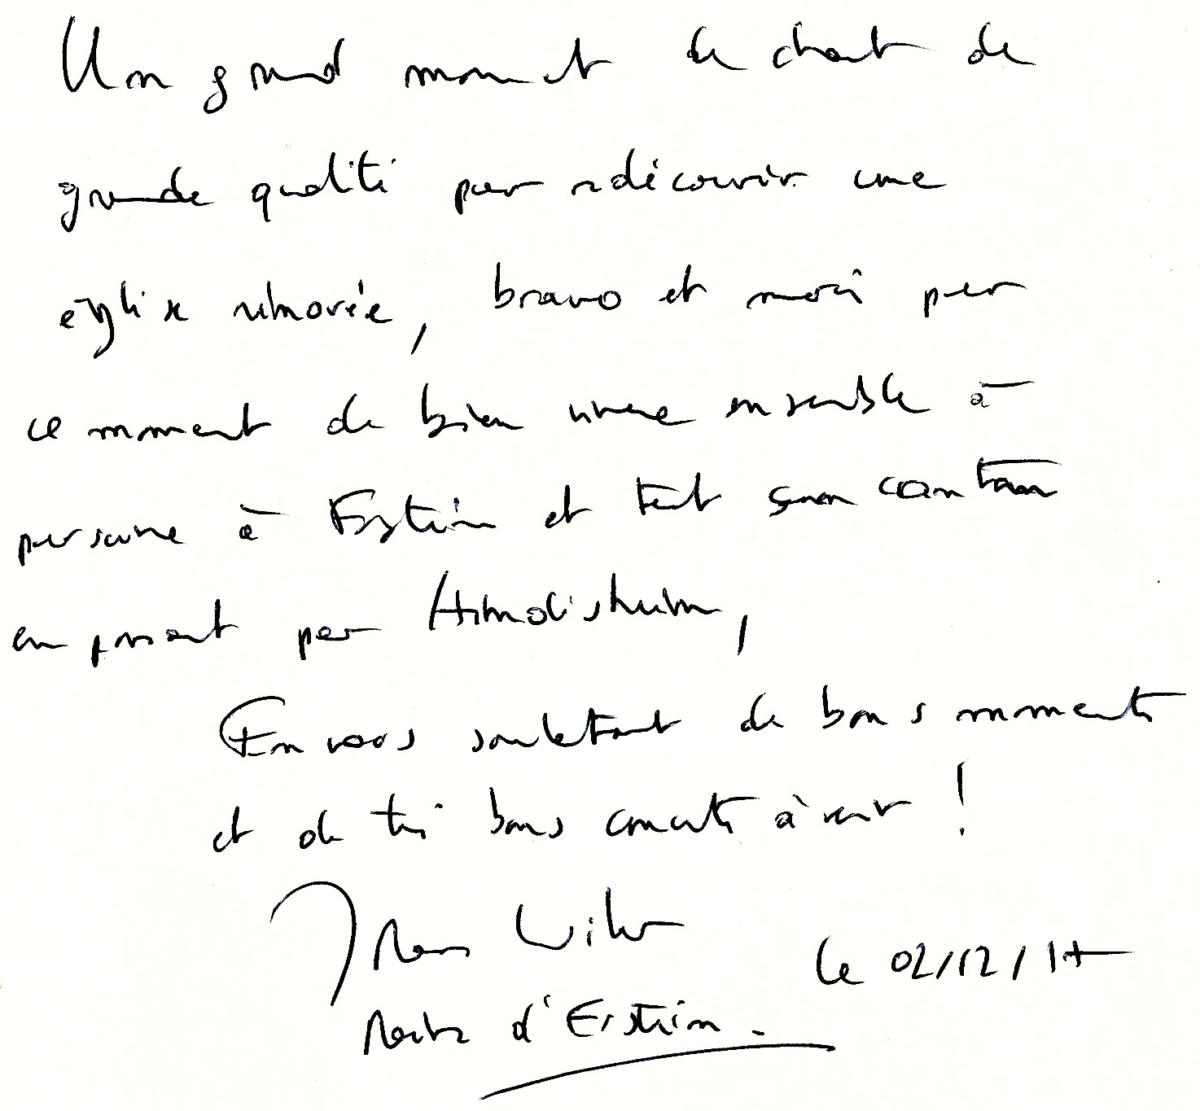 Un grand moment de chant de
grande qualité pour redécouvrir une
église rénovée, bravo et merci pour
ce moment de bien vivre ensemble à
personne à Erstein et tout son canton
en passant par Hindisheim,
En vous souhaitant de bons moments
et de très bons concerts à venir !
le 02/12/17
Maire d'Erstein.